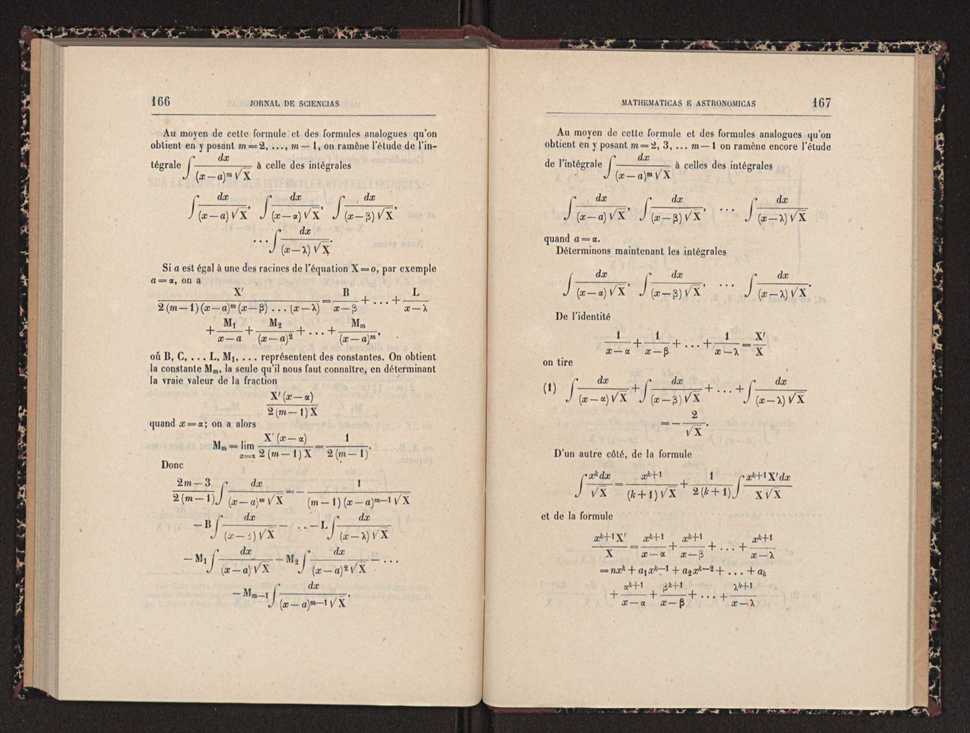 166 JORNAL DE SCIENCIAS
Au moyen de cette formule et des formules analogues qu'on
obtient en y posant m=2, ..., m — 1, on ramène l'étude de l'in-
tégrale ∫ dx / (x—a)^m √X à celle des intégrales
∫ dx / (x—a)√X, ∫ dx / (x—α)√X, ∫ dx / (x—β)√X,
... ∫ dx / (x—λ)√X.
Si a est égal à une des racines de l'équation X=o, par exemple
a=α, on a
X' / 2(m—1)(x—a)^m (x—β) ... (x—λ) = B / x—β + ... + L / x—λ
+ M₁ / x—a + M₂ / (x—a)² + ... + M_m / (x—a)^m,
où B, C, ... L, M₁, ... représentent des constantes. On obtient
la constante M_m, la seule qu'il nous faut connaître, en déterminant
la vraie valeur de la fraction
X'(x—α) / 2(m—1)X
quand x=α; on a alors
M_m = lim x=α X'(x—α) / 2(m—1)X = 1 / 2(m—1).
Donc
2m—3 / 2(m—1) ∫ dx / (x—a)^m √X = — 1 / (m—1)(x—a)^{m—1} √X
—B ∫ dx / (x—β)√X — ... —L ∫ dx / (x—λ)√X
—M₁ ∫ dx / (x—a)√X —M₂ ∫ dx / (x—a)²√X — ...
—M_{m—1} ∫ dx / (x—a)^{m—1} √X.
MATHEMATICAS E ASTRONOMICAS 167
Au moyen de cette formule et des formules analogues qu'on
obtient en y posant m=2, 3, ... m—1 on ramène encore l'étude
de l'intégrale ∫ dx / (x—a)^m √X à celles des intégrales
∫ dx / (x—a)√X, ∫ dx / (x—β)√X, ... ∫ dx / (x—λ)√X
quand a=α.
Déterminons maintenant les intégrales
∫ dx / (x—α)√X, ∫ dx / (x—β)√X, ... ∫ dx / (x—λ)√X.
De l'identité
1 / x—α + 1 / x—β + ... + 1 / x—λ = X' / X
on tire
(1) ∫ dx / (x—α)√X + ∫ dx / (x—β)√X + ... + ∫ dx / (x—λ)√X
= — 2 / √X.
D'un autre côté, de la formule
∫ x^k dx / √X = x^{k+1} / (k+1)√X + 1 / 2(k+1) ∫ x^{k+1} X' dx / X√X
et de la formule
x^{k+1} X' / X = x^{k+1} / x—α + x^{k+1} / x—β + ... + x^{k+1} / x—λ
= nx^k + a₁x^{k—1} + a₂x^{k—2} + ... + a_k
+ α^{k+1} / x—α + β^{k+1} / x—β + ... + λ^{k+1} / x—λ